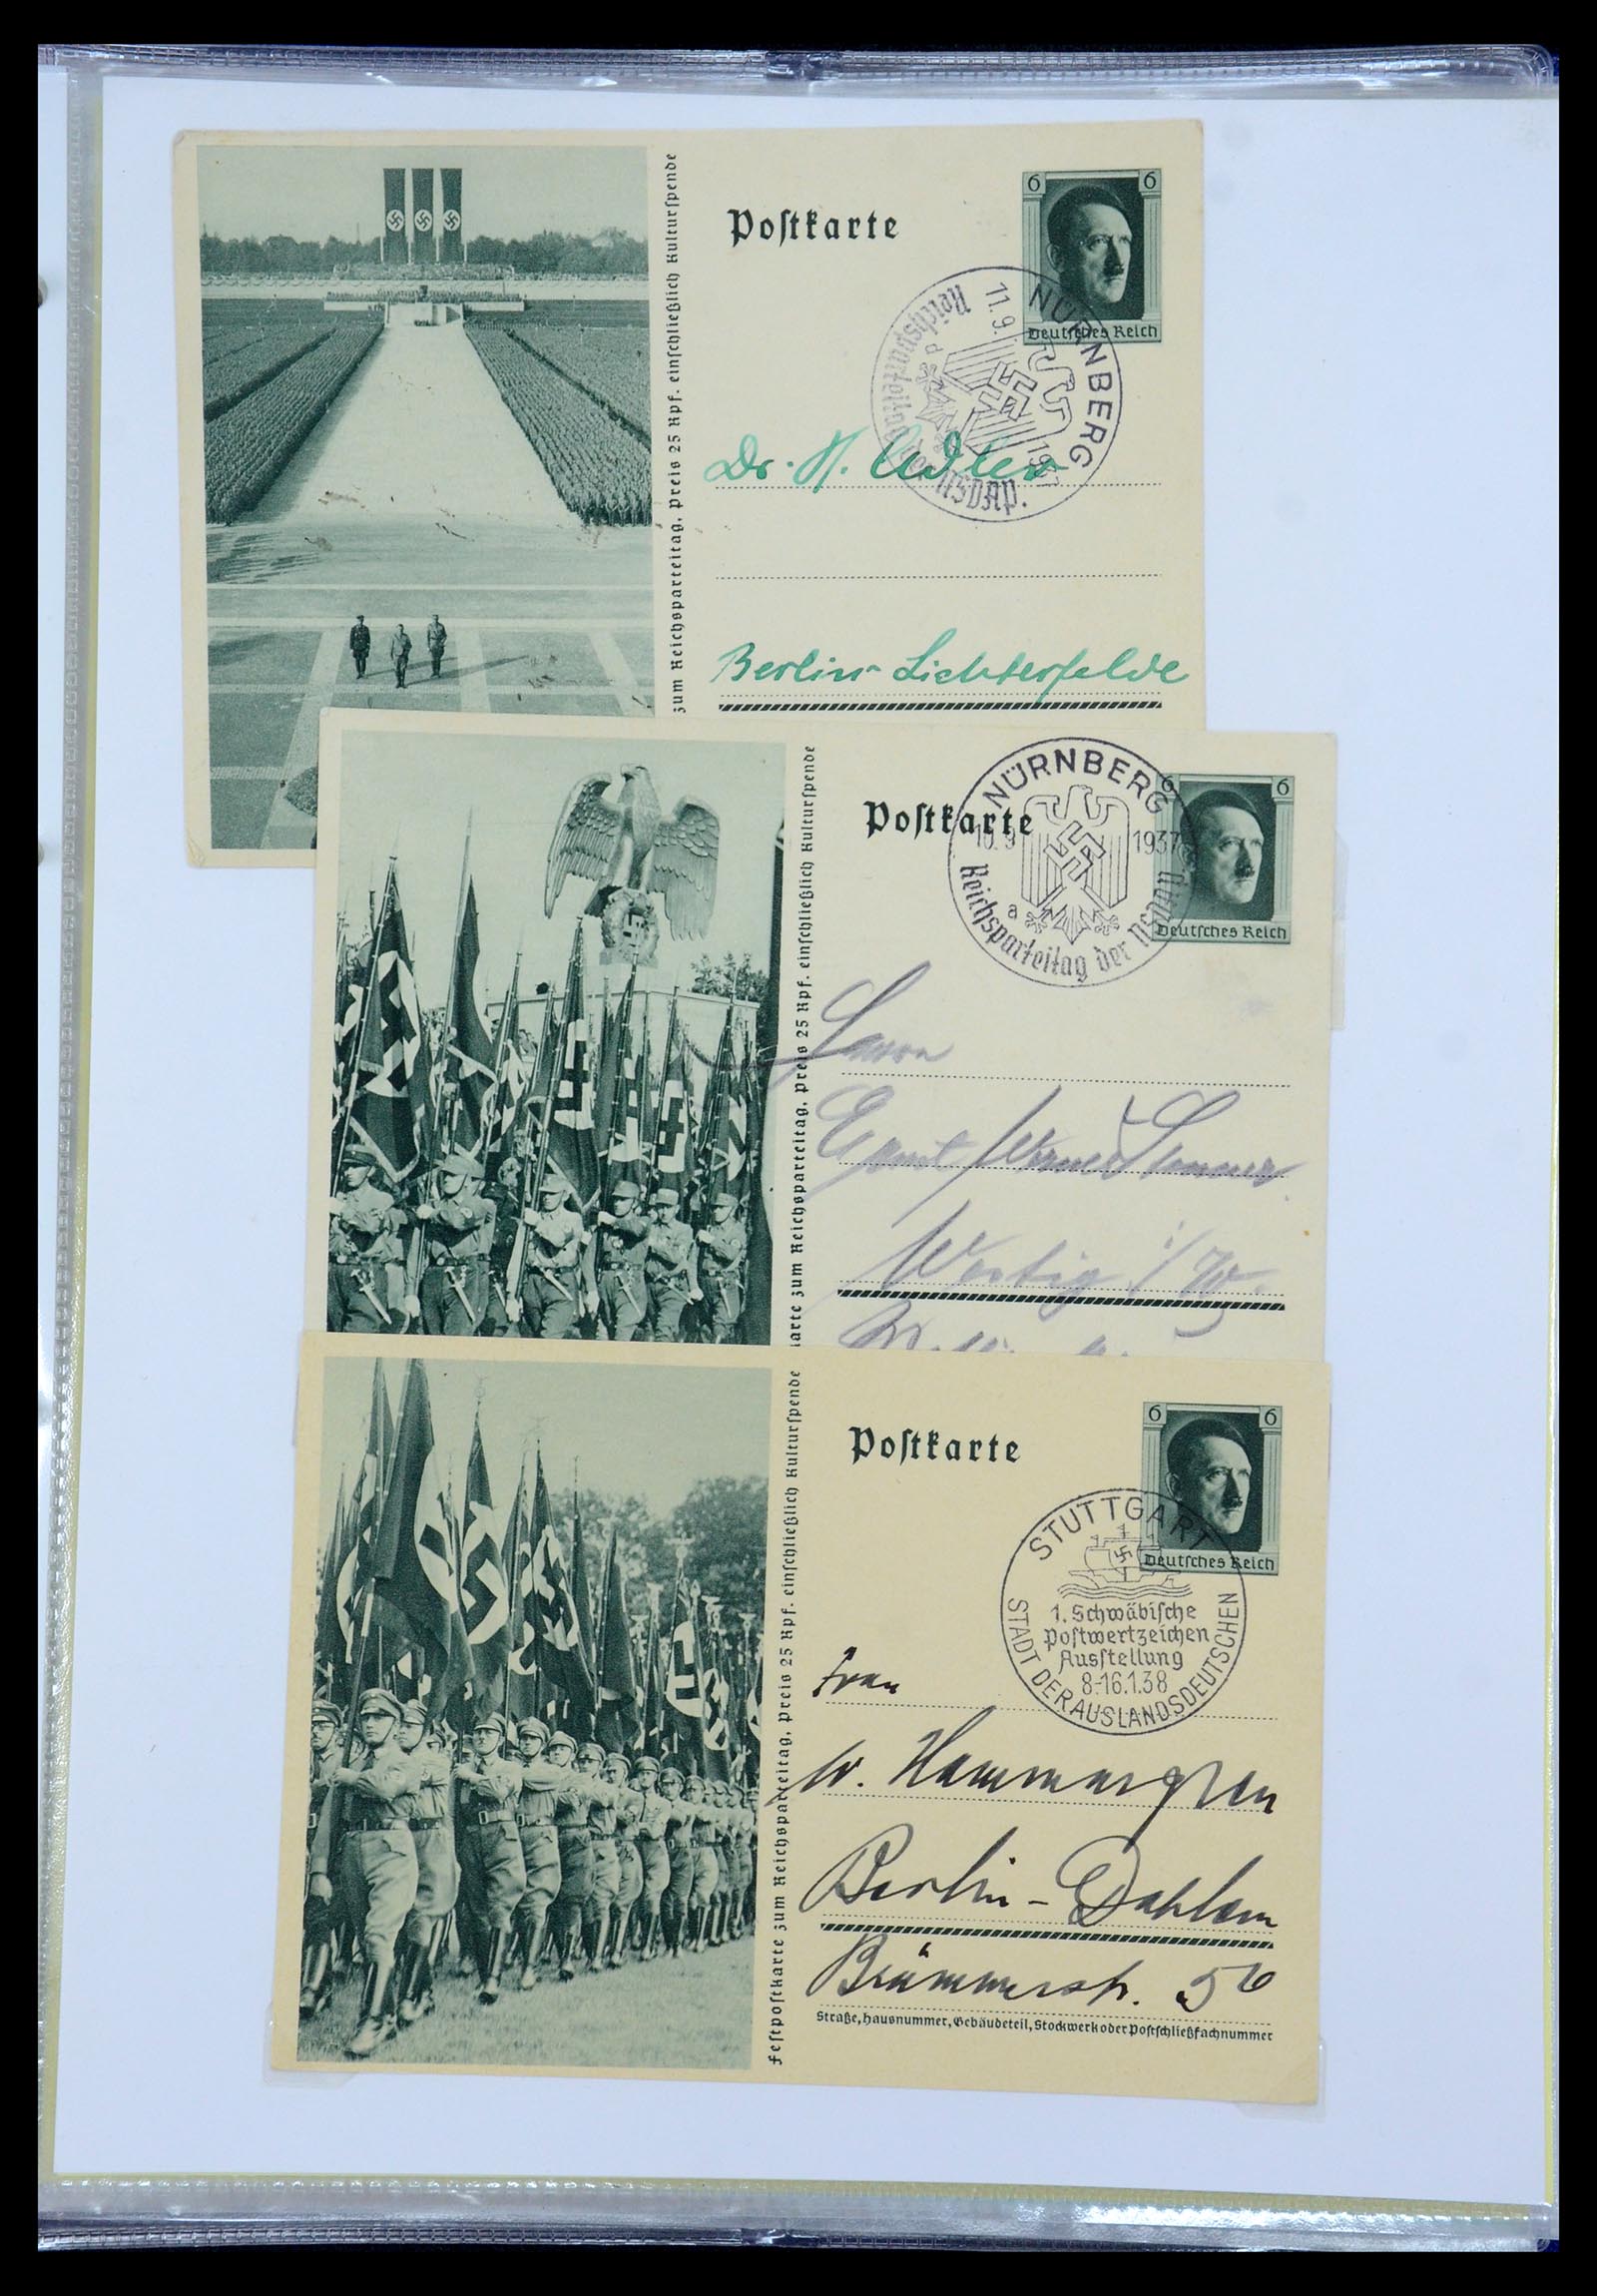 zum Reichsparteitag, Preis 25 Rpf. einschließlich Kulturspende
Poſtkarte
6 6
Deutsches Reich
NÜRNBERG
11.9. 1937
d
Reichsparteitag der NSDAP.
Dr. H. Adler
Berlin-Lichterfelde
karte zum Reichsparteitag, Preis 25 Rpf. einſchließlich Kulturſpende
Poſtkarte
6 6
Deutſches Reich
NÜRNBERG
10.9 1937
a
Reichsparteitag der NSDAP
Ernst Werner
Feſtpoſtkarte zum Reichsparteitag, Preis 25 Rpf. einſchließlich Kulturſpende
Poſtkarte
6 6
Deutſches Reich
STUTTGART
1. Schwäbiſche
Poſtwertzeichen
Ausſtellung
8.-16.1.38
STADT DER AUSLANDSDEUTSCHEN
Frau
W. Hammargren
Berlin-Dahlem
Brümmerstr. 56
Straße, Hausnummer, Gebäudeteil, Stockwerk oder Poſtſchließfachnummer